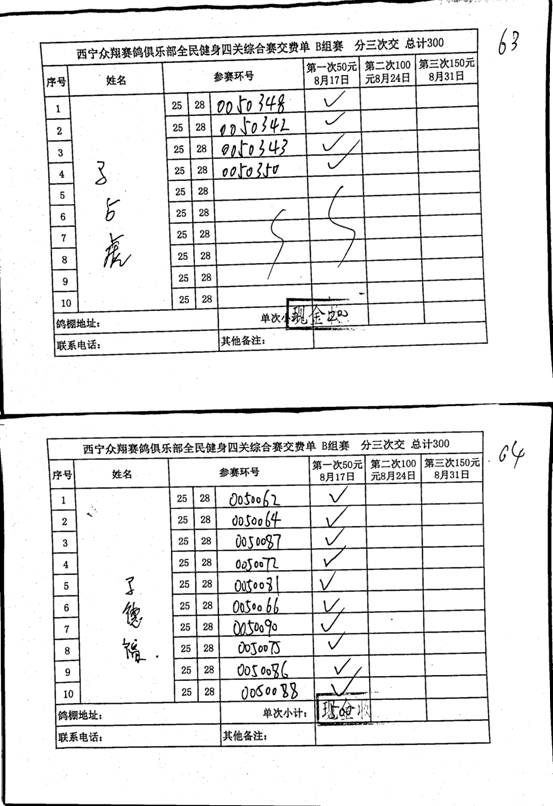 63
西宁众翔赛鸽俱乐部全民健身四关综合赛交费单 B组赛 分三次交 总计300
序号 姓名 参赛环号 第一次50元 8月17日 第二次100元8月24日 第三次150元 8月31日
1 25 28 0050348 ✓
2 25 28 0050342 ✓
3 25 28 0050343 ✓
4 25 28 0050350 ✓
5 25 28
6 25 28
7 25 28
8 25 28
9 25 28
10 25 28
鸽棚地址: 单次小 现金 200
联系电话: 其他备注:
64
西宁众翔赛鸽俱乐部全民健身四关综合赛交费单 B组赛 分三次交 总计300
序号 姓名 参赛环号 第一次50元 8月17日 第二次100元8月24日 第三次150元 8月31日
德福
1 25 28 0050062 ✓
2 25 28 0050064 ✓
3 25 28 0050087 ✓
4 25 28 0050072 ✓
5 25 28 0050081 ✓
6 25 28 0050066 ✓
7 25 28 0050090 ✓
8 25 28 0050075 ✓
9 25 28 0050086 ✓
10 25 28 0050088 ✓
鸽棚地址: 单次小计: 现金收
联系电话: 其他备注: